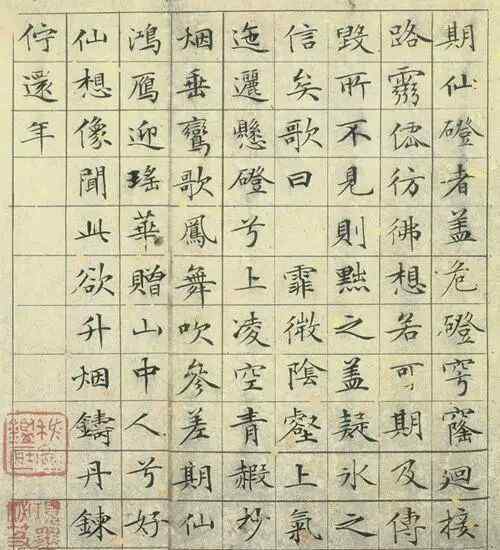 期仙磴者盖危磴穹窿迴接
路霛僊彷彿想若可期及傳
毀所不見則黜之盖疑氷之
信矣歌曰 霏微陰壑上氣
迤邐懸磴兮上凌空青赮杪
烟垂鸞歌鳳舞吹參差期仙
鴻鴈迎瑤華贈山中人兮好
仙想像聞此欲升烟鑄丹鍊
佇還年